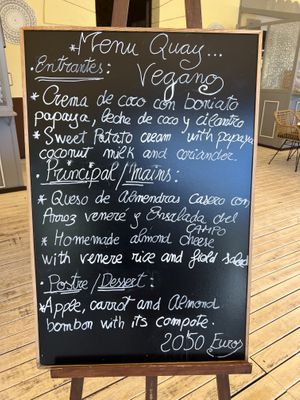 *Menu Quay...
. Entrantes: Vegano
* Crema de coco con boniato
papaya, leche de coco y cilantro
* Sweet Potato cream with papaya
coconut milk and coriander.
. Principal/mains:
* Queso de Almendras casero con
Arroz veneré y Ensalada del
CAMPO
* Homemade almond cheese
with venere rice and field salad
. Postre/Dessert:
* Apple, carrot and Almond
bombon with its compote.
2050 Euros